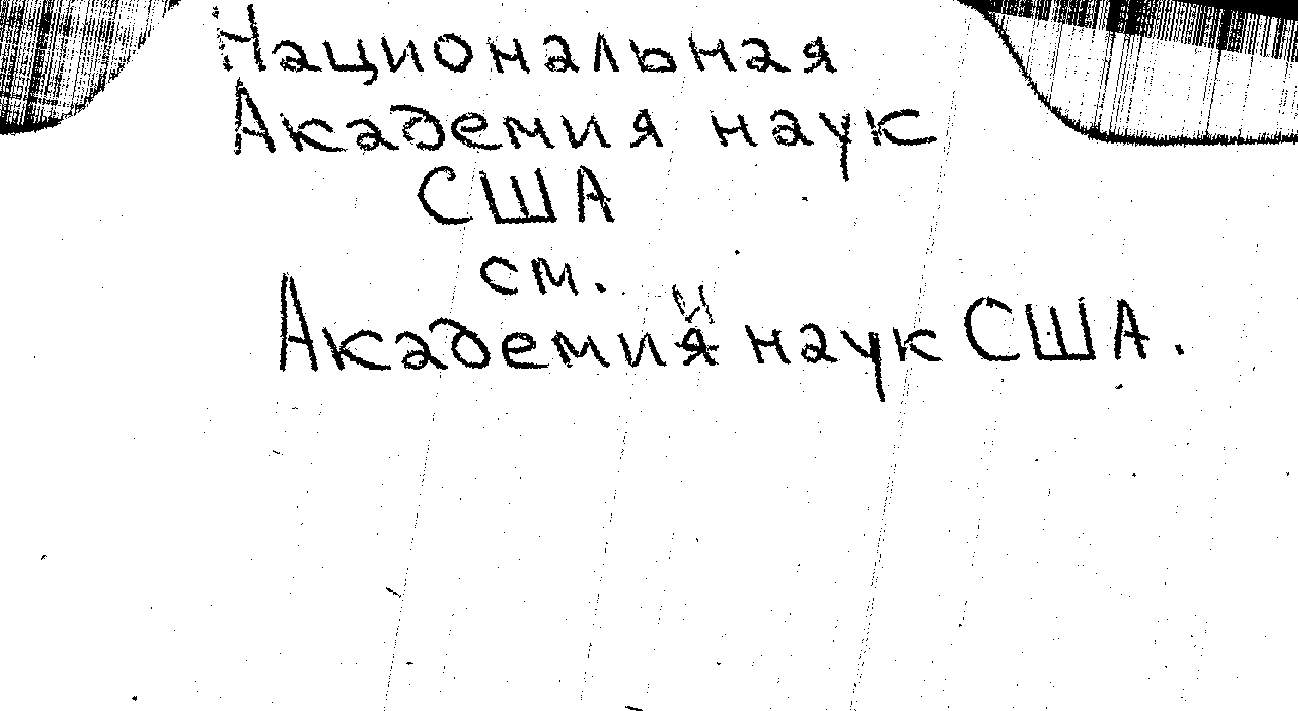 Национальная
Академия наук
США
см.
Академии наук США.